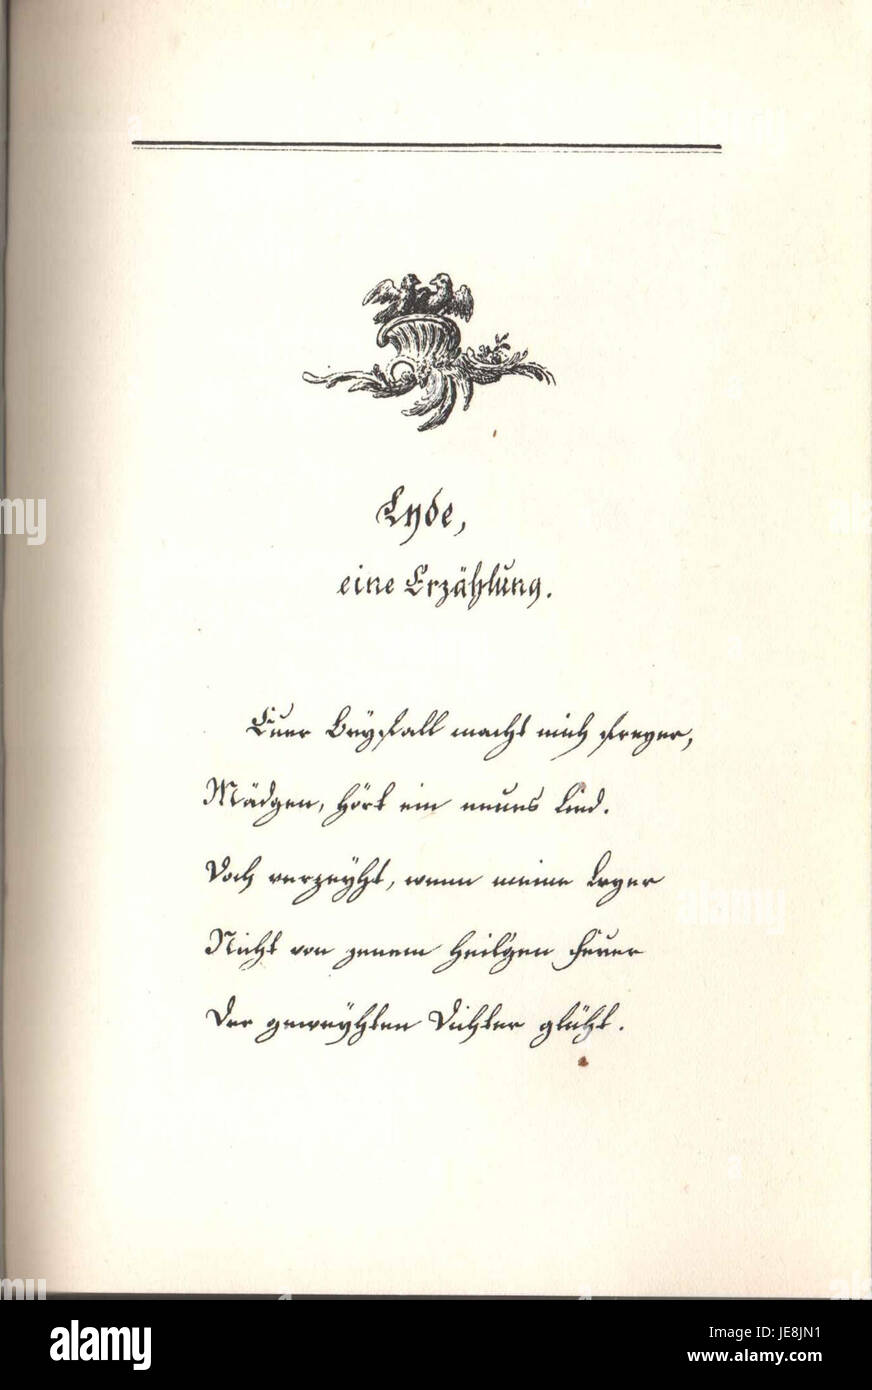 Lyde,
eine Erzählung.
Euer Beyfall macht mich freyer,
Mädgen, hört ein neues Lied.
Doch verzeyht, wenn meine Leyer
Nicht von jenem heil'gen Feuer
Der geweyhten Dichter glüht.
alamy
alamy
Image ID: JE8JN1
www.alamy.com